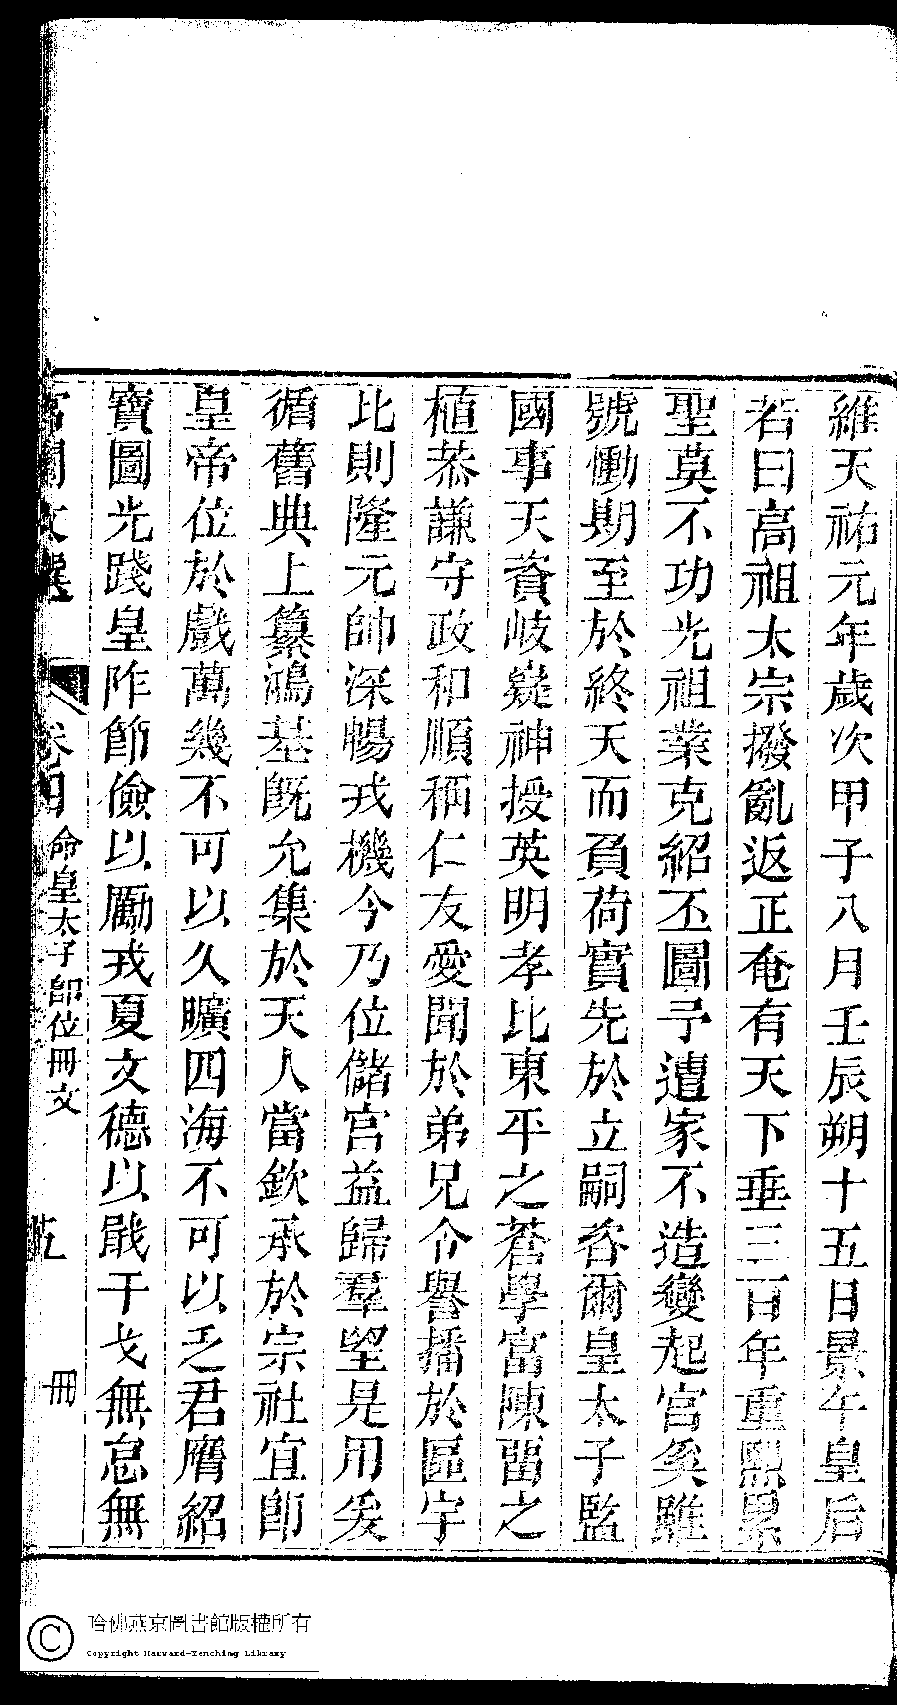 維天祐元年歲次甲子八月壬辰朔十五日景午皇后
若曰高祖太宗撥亂返正奄有天下垂三百年重熙累
聖莫不功光祖業克紹丕圖予遭家不造變起宮奚雖
號慟期至於終天而負荷實先於立嗣咨爾皇太子監
國事天資岐嶷神授英明孝比東平之蒼學富陳畱之
植恭謙守政和順稱仁友愛聞於弟兄令譽播於區宇
比則隆元帥深暢戎機今乃位儲宮益歸羣望是用爰
循舊典上纂鴻基旣允集於天人當欽承於宗社宜卽
皇帝位於戲萬幾不可以久曠四海不可以乏君膺紹
寶圖光踐皇阼節儉以勵戎夏文德以戢干戈無怠無
宮閨文選 卷四 命皇太子卽位冊文 冊
哈佛燕京圖書館版權所有
Copyright Harvard-Yenching Library